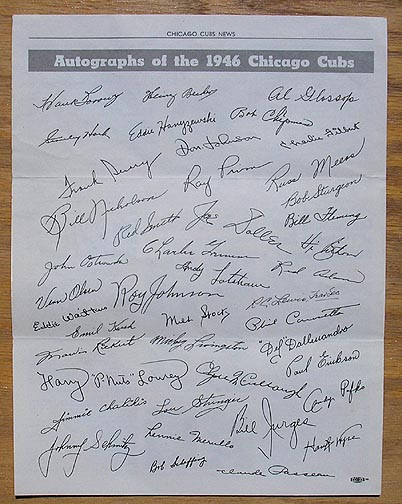 CHICAGO CUBS NEWS
Autographs of the 1946 Chicago Cubs
Hank Borowy Al Glossop
Stanley Hack Eddie Hanyzewski Bob Chipman
Don Johnson Charlie Gilbert
Frank Secory Ray Prim Russ Meers
Bill Nicholson Bob Sturgeon
Red Smith Bill Fleming
John Ostrowski Charlie Grimm Hi Bithorn
Andy Lotshaw Red Adams
Vern Olsen Roy Johnson
Eddie Waitkus Emil Kush Phil Cavarretta
Mickey Livingston "Del" Dallessandro
Paul Erickson
Harry "P'Nuts" Lowrey Clyde McCullough
Andy Pafko
Lou Stringer
Johnny Schmitz Lennie Merullo Bill Jurges
Hank Wyse
Bob Scheffing Claude Passeau